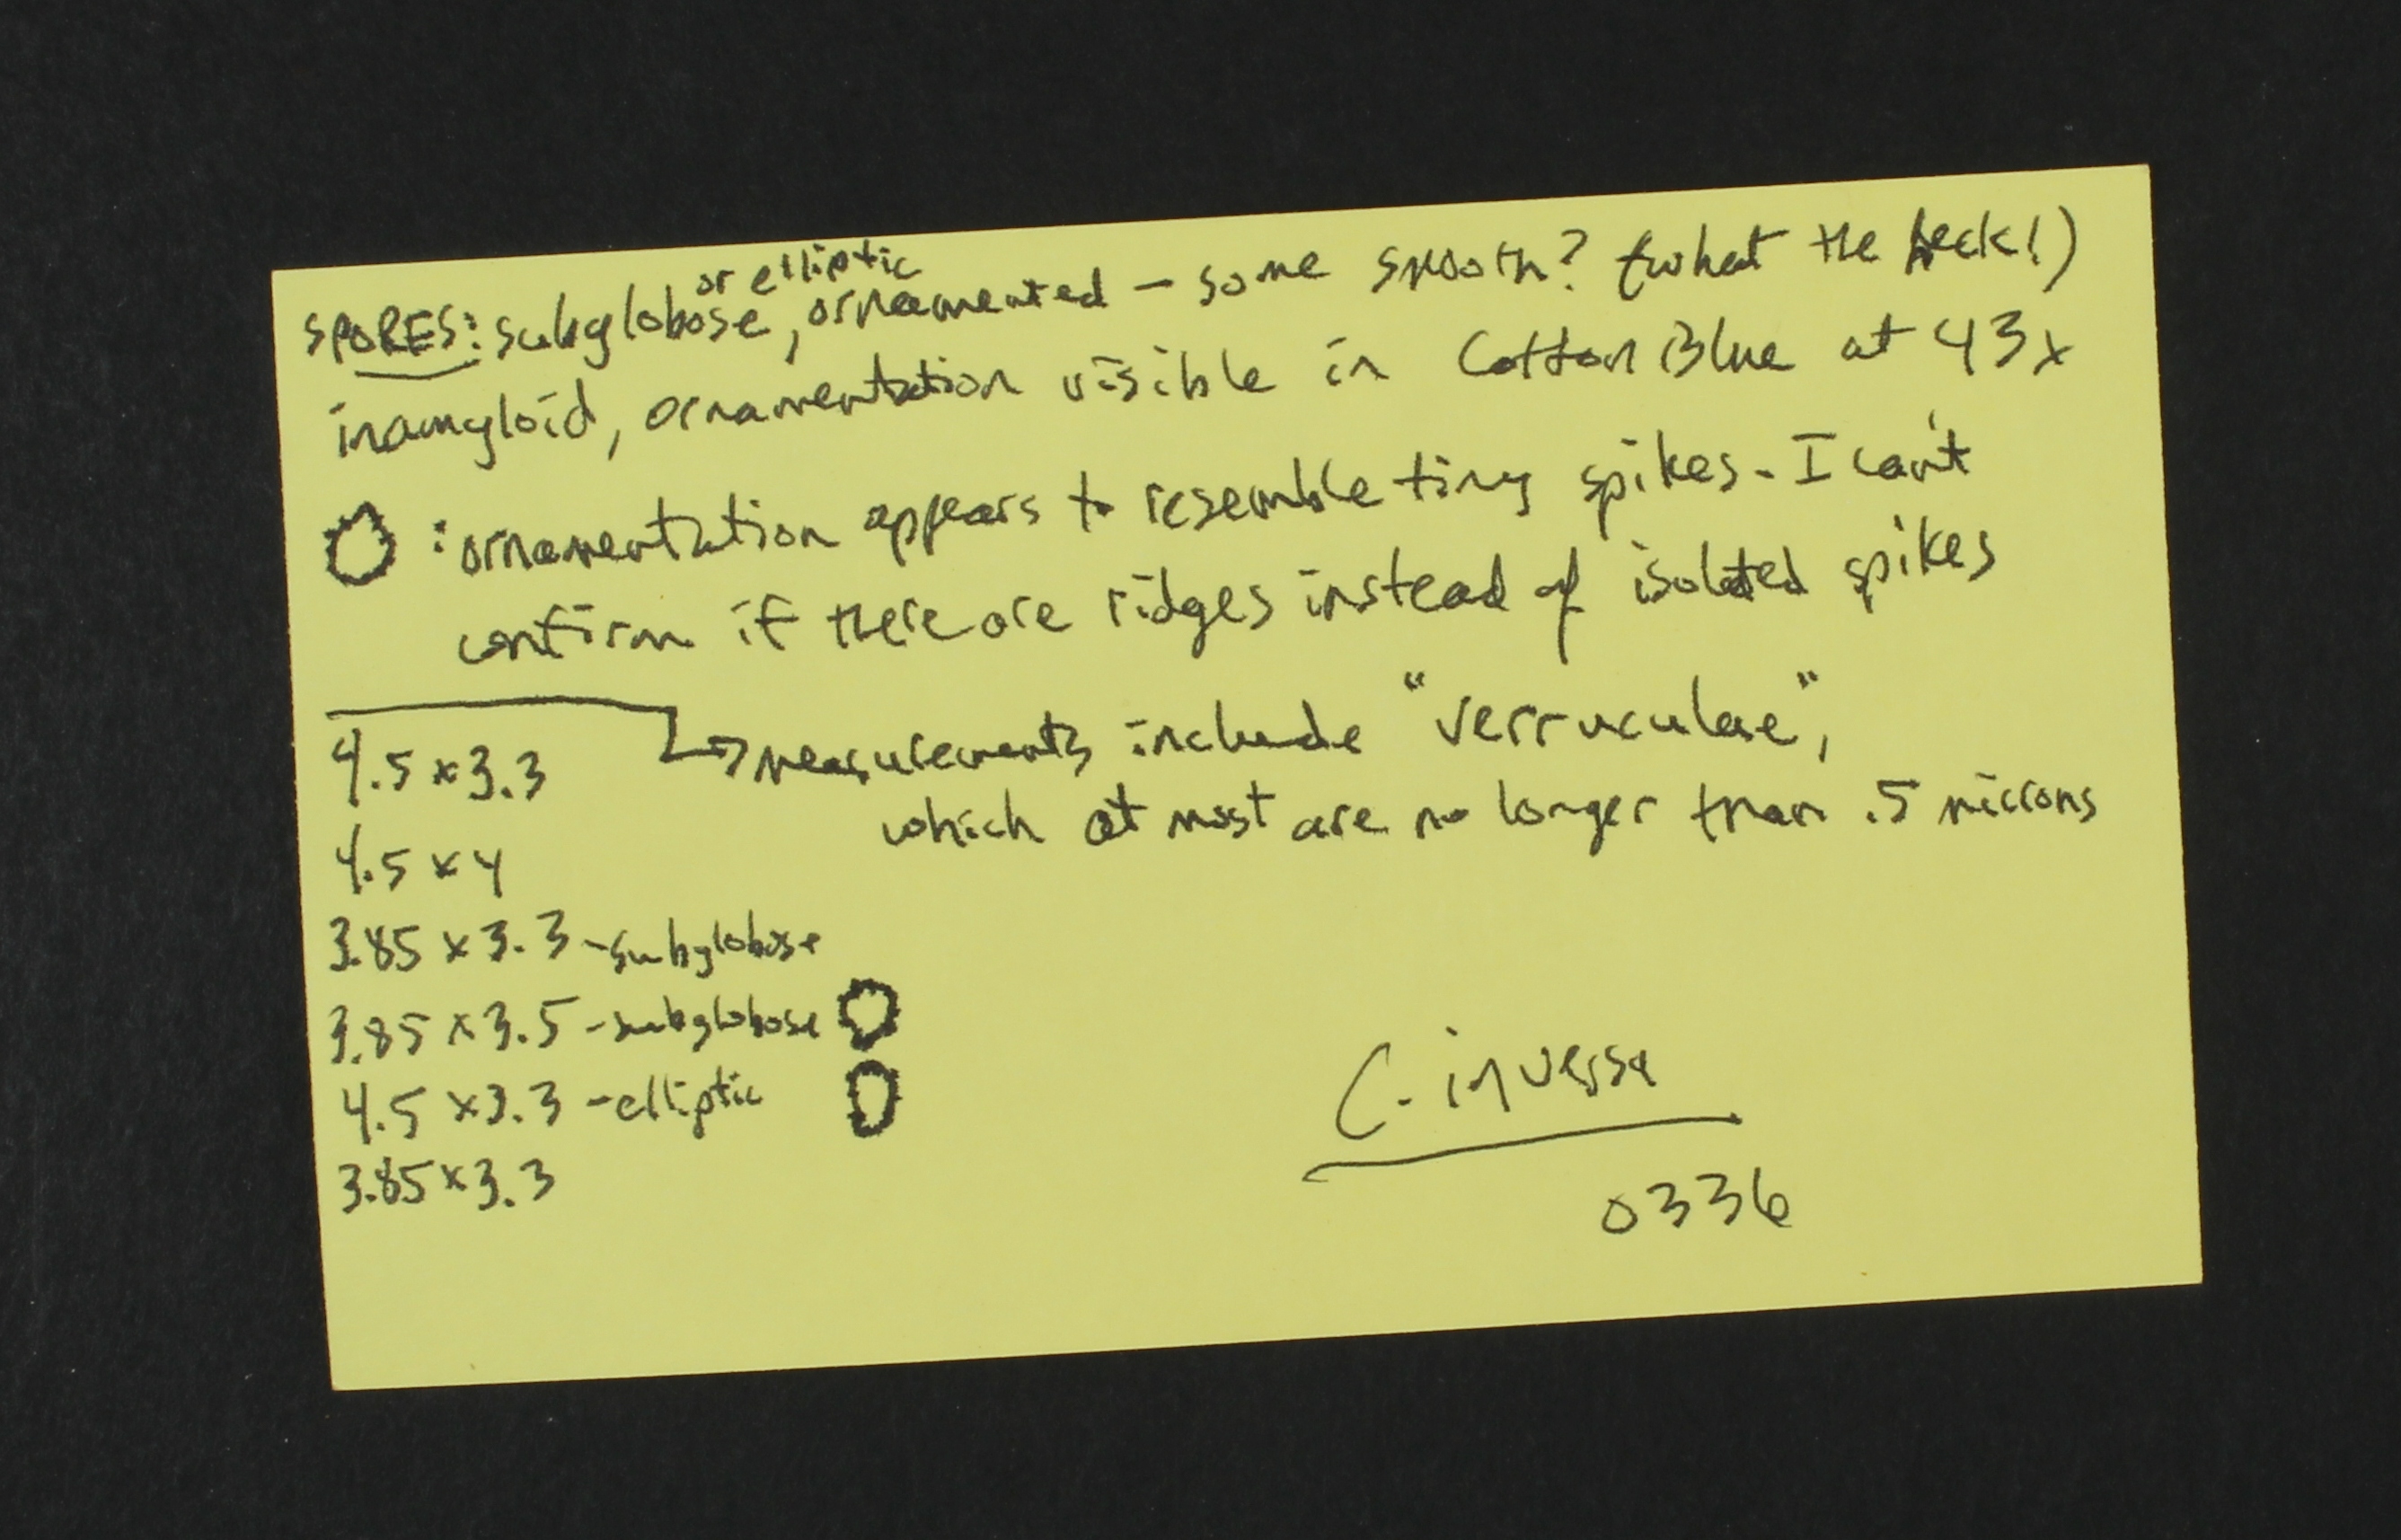 or elliptic
SPORES: subglobose, ornamented - some smooth? (what the heck!)
inamyloid, ornamentation visible in Cotton Blue at 43x
: ornamentation appears to resemble tiny spikes. I can't
confirm if there are ridges instead of isolated spikes
measurements include "verruculae",
which at most are no longer than .5 microns
4.5 x 3.3
4.5 x 4
3.85 x 3.3 - subglobose
3.85 x 3.5 - subglobose
4.5 x 3.3 - elliptic
3.85 x 3.3
C. inversa
0336